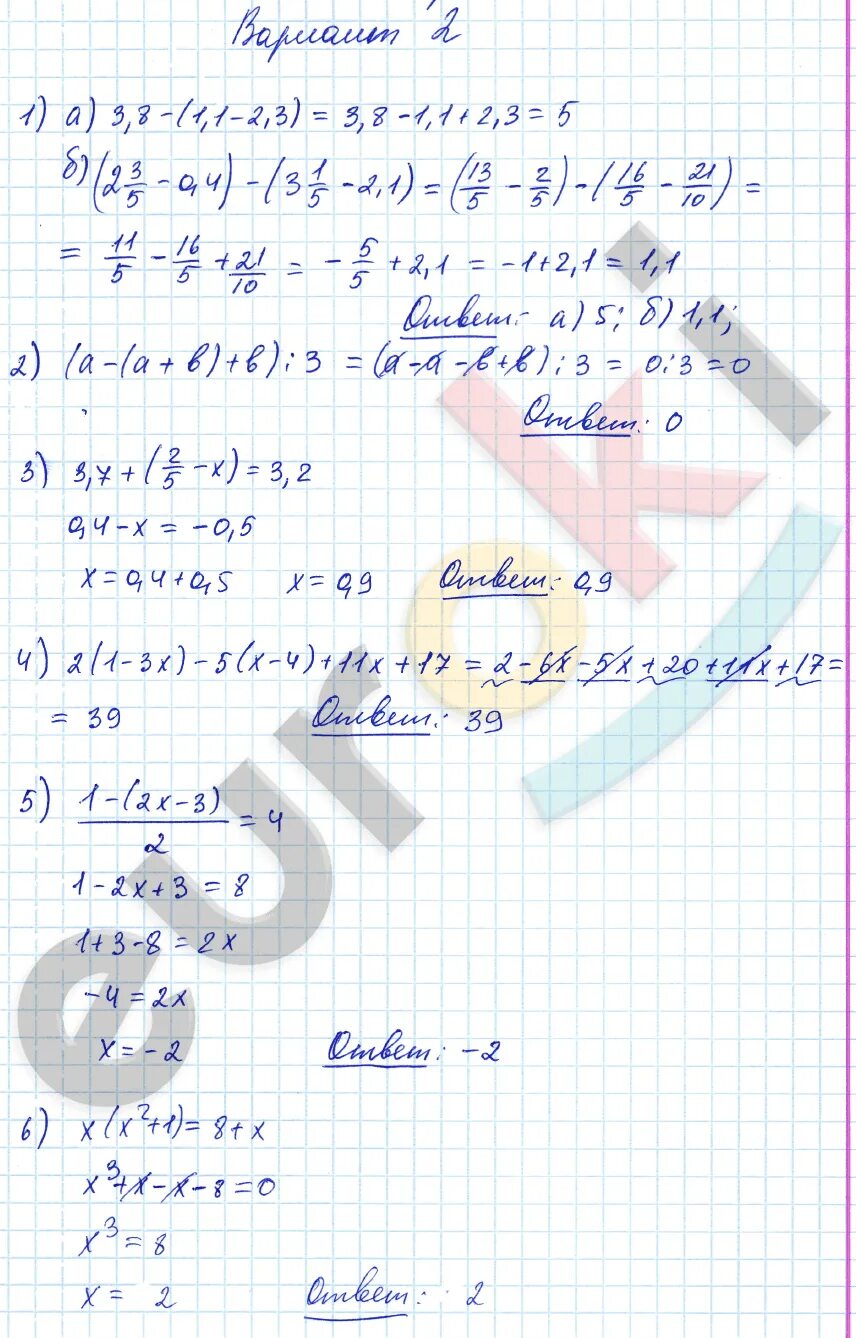 Вариант 2
1) а) 3,8-(1,1-2,3) = 3,8-1,1+2,3 = 5
б) (2 3/5 - 0,4) - (3 1/5 - 2,1) = (13/5 - 2/5) - (16/5 - 21/10) =
= 11/5 - 16/5 + 21/10 = - 5/5 + 2,1 = -1+2,1 = 1,1
Ответ: а) 5; б) 1,1;
2) (a-(a+b)+b):3 = (a-a-b+b):3 = 0:3=0
Ответ: 0
3) 3,7+(2/5 - x) = 3,2
0,4-x = -0,5
x=0,4+0,5 x=0,9 Ответ: 0,9
4) 2(1-3x)-5(x-4)+11x+17 = 2-6x-5x+20+11x+17=
= 39 Ответ: 39
5) 1-(2x-3)/2 = 4
1-2x+3 = 8
1+3-8 = 2x
-4 = 2x
x = -2 Ответ: -2
6) x(x²+1) = 8+x
x³+x-x-8=0
x³ = 8
x = 2 Ответ: 2
euroki